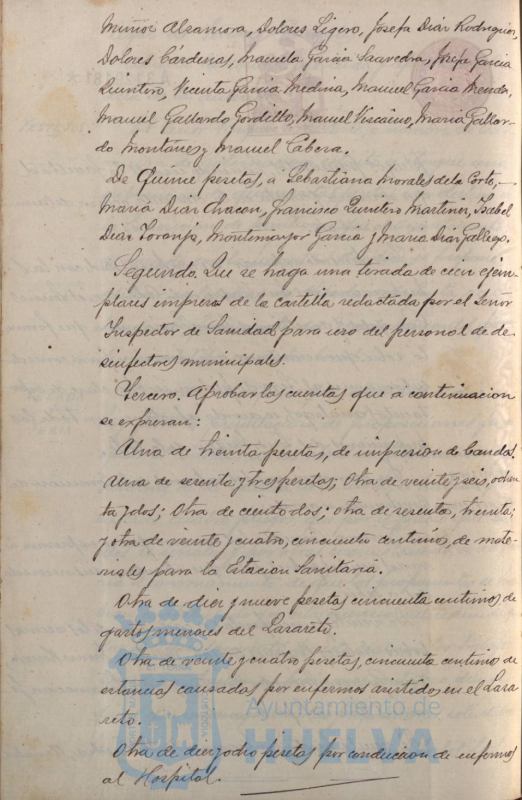 Muñoz Alzamora, Dolores Ligero, Josefa Diaz Rodriguez,
Dolores Cárdenas, Manuela Garcia Saavedra, Josefa Garcia
Quintero, Vicenta Garcia Medina, Manuel Garcia Mendez,
Manuel Gallardo Gordillo, Manuel Viscaino, Maria Gallar-
do Montañes y Manuel Cabera.
De Quince pesetas, a Sebastiana Morales de la Corte,—
Maria Diaz Chacon, Francisco Quintero Martinez, Isabel
Diaz Toronjo, Montemayor Garcia y Maria Diaz Gallego.
Segundo. Que se haga una tirada de cien ejem-
plares impresos de la cartilla redactada por el Señor
Inspector de Sanidad para uso del personal de de-
sinfectores municipales.
Tercero. Aprobar las cuentas que á continuacion
se expresan:
Una de treinta pesetas, de impresion de bandos.
Una de sesenta y tres pesetas; Otra de veinte y seis, ochen-
ta y dos; Otra de ciento dos; otra de sesenta, treinta;
y otra de veinte y cuatro, cincuenta centimos, de mate-
riales para la Estacion Sanitaria.
Otra de diez y nueve pesetas cincuenta centimos de
gastos menores del Lazareto.
Otra de veinte y cuatro pesetas, cincuenta centimos de
estancias causadas por enfermos asistidos en el Laza-
reto.
Otra de diez y ocho pesetas por conduccion de enfermos
al Hospital.
Ayuntamiento de
HUELVA